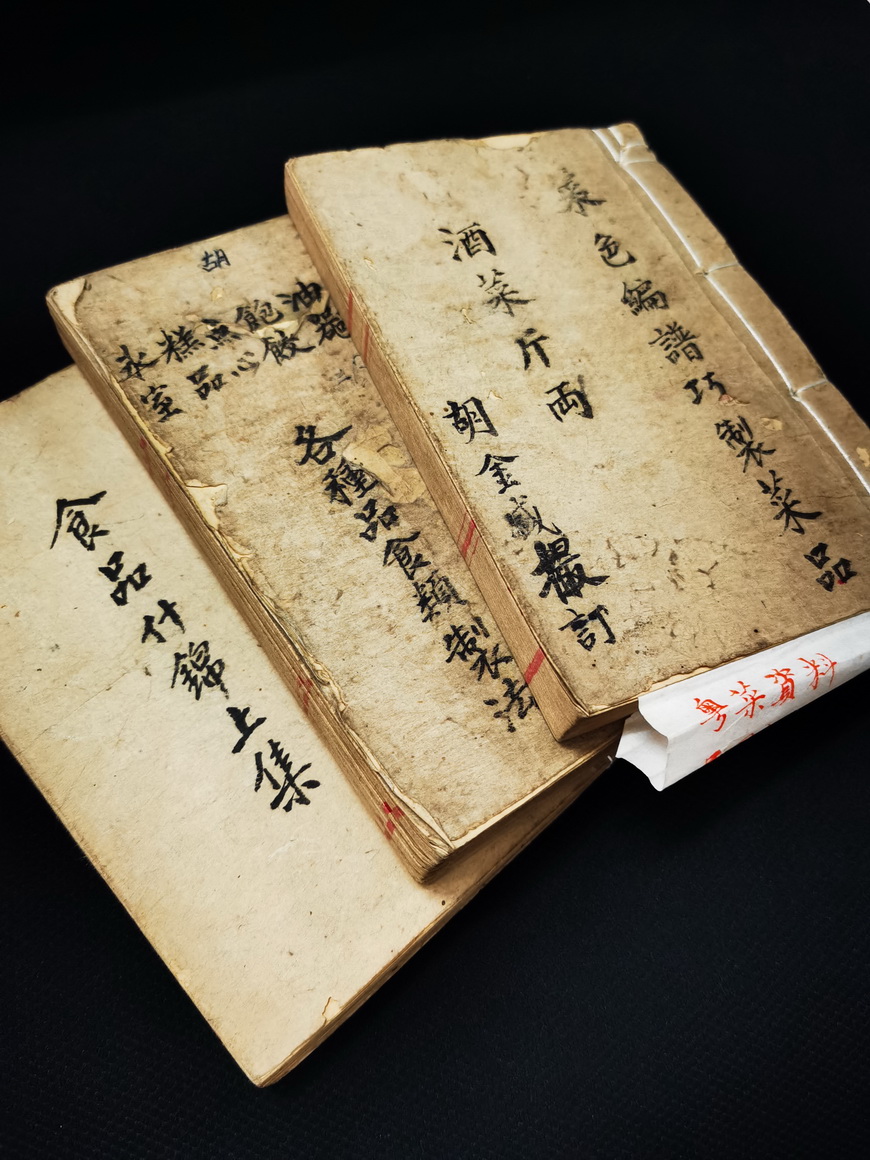 色編譜巧製菜品
酒菜斤両
胡金盛訂
粤菜資料
胡
油器
飽餃
点心
糕品
氷室
各種品食類製法
食品什錦上集